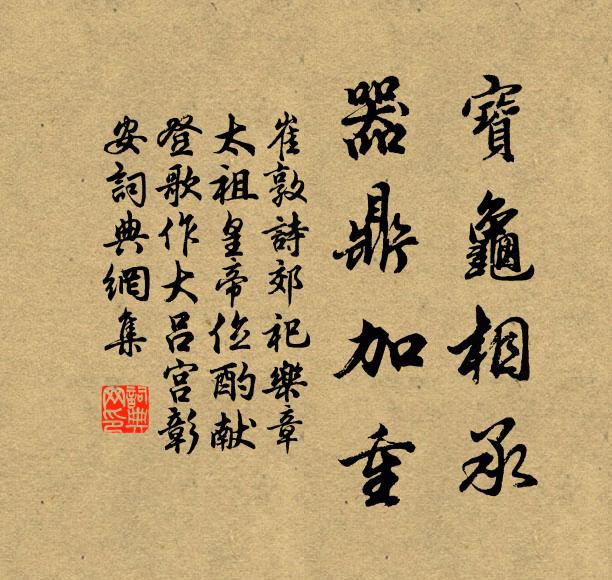 寶龜相承
器鼎加重
崔敦詩郊祀樂章
太祖皇帝位酌献
登歌作大呂宮彰
安詞典網集
詞典網印